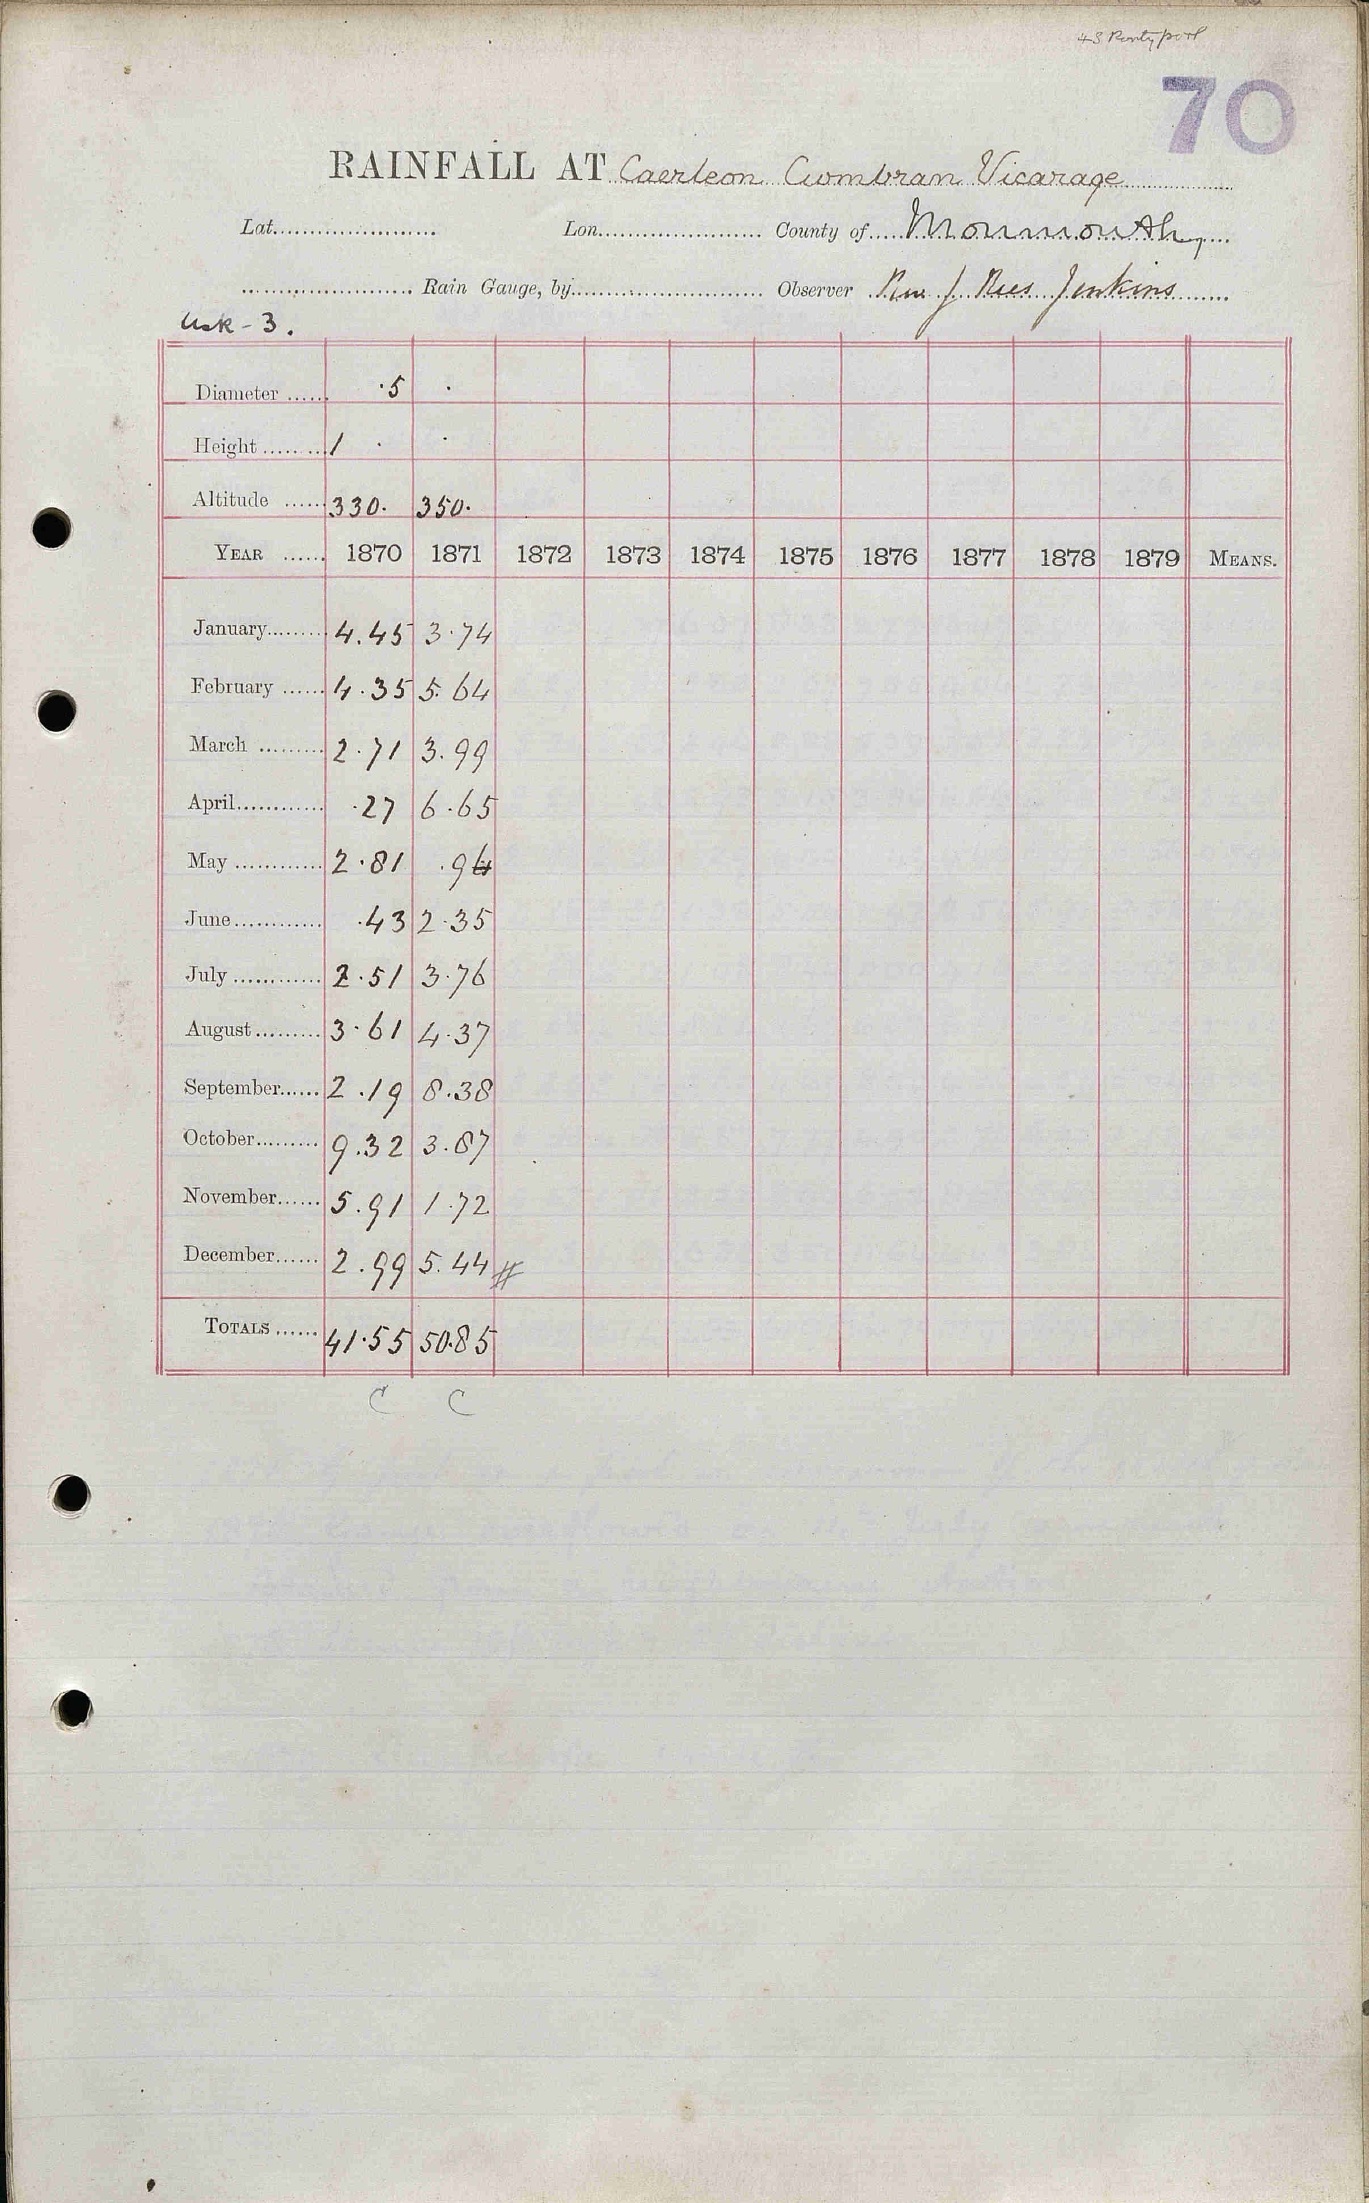 43 Pontypool
70
RAINFALL AT Caerleon Cwmbran Vicarage
Lat. Lon. County of Monmouth
Rain Gauge, by Observer Rev J Rees Jenkins
Usk - 3.
Diameter ·5 ·
Height 1 · ·
Altitude 330. 350.
YEAR 1870 1871 1872 1873 1874 1875 1876 1877 1878 1879 MEANS.
January 4.45 3.74
February 4.35 5.64
March 2.71 3.99
April .27 6.65
May 2.81 .94
June .43 2.35
July 2.51 3.76
August 3.61 4.37
September 2.19 8.38
October 9.32 3.87
November 5.91 1.72
December 2.99 5.44 #
TOTALS 41.55 50.85
C C